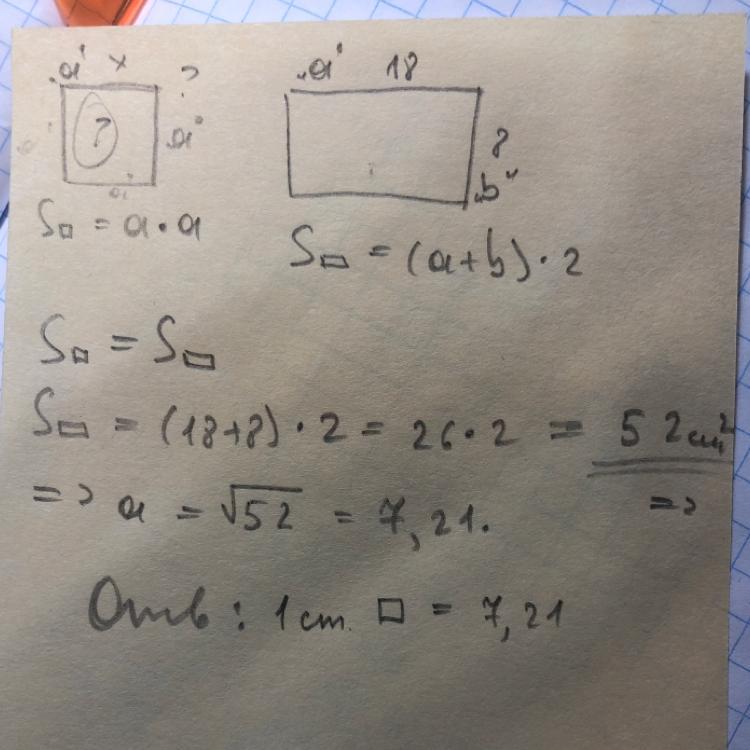 „a“ x ?
? „a“
a
S□ = a·a
„a“ 18
8
„b“
S▭ = (a+b)·2
S□ = S▭
S▭ = (18+8)·2 = 26·2 = 52 см²
=> a = √52 = 7,21. =>
Отв: 1 cm. □ = 7,21